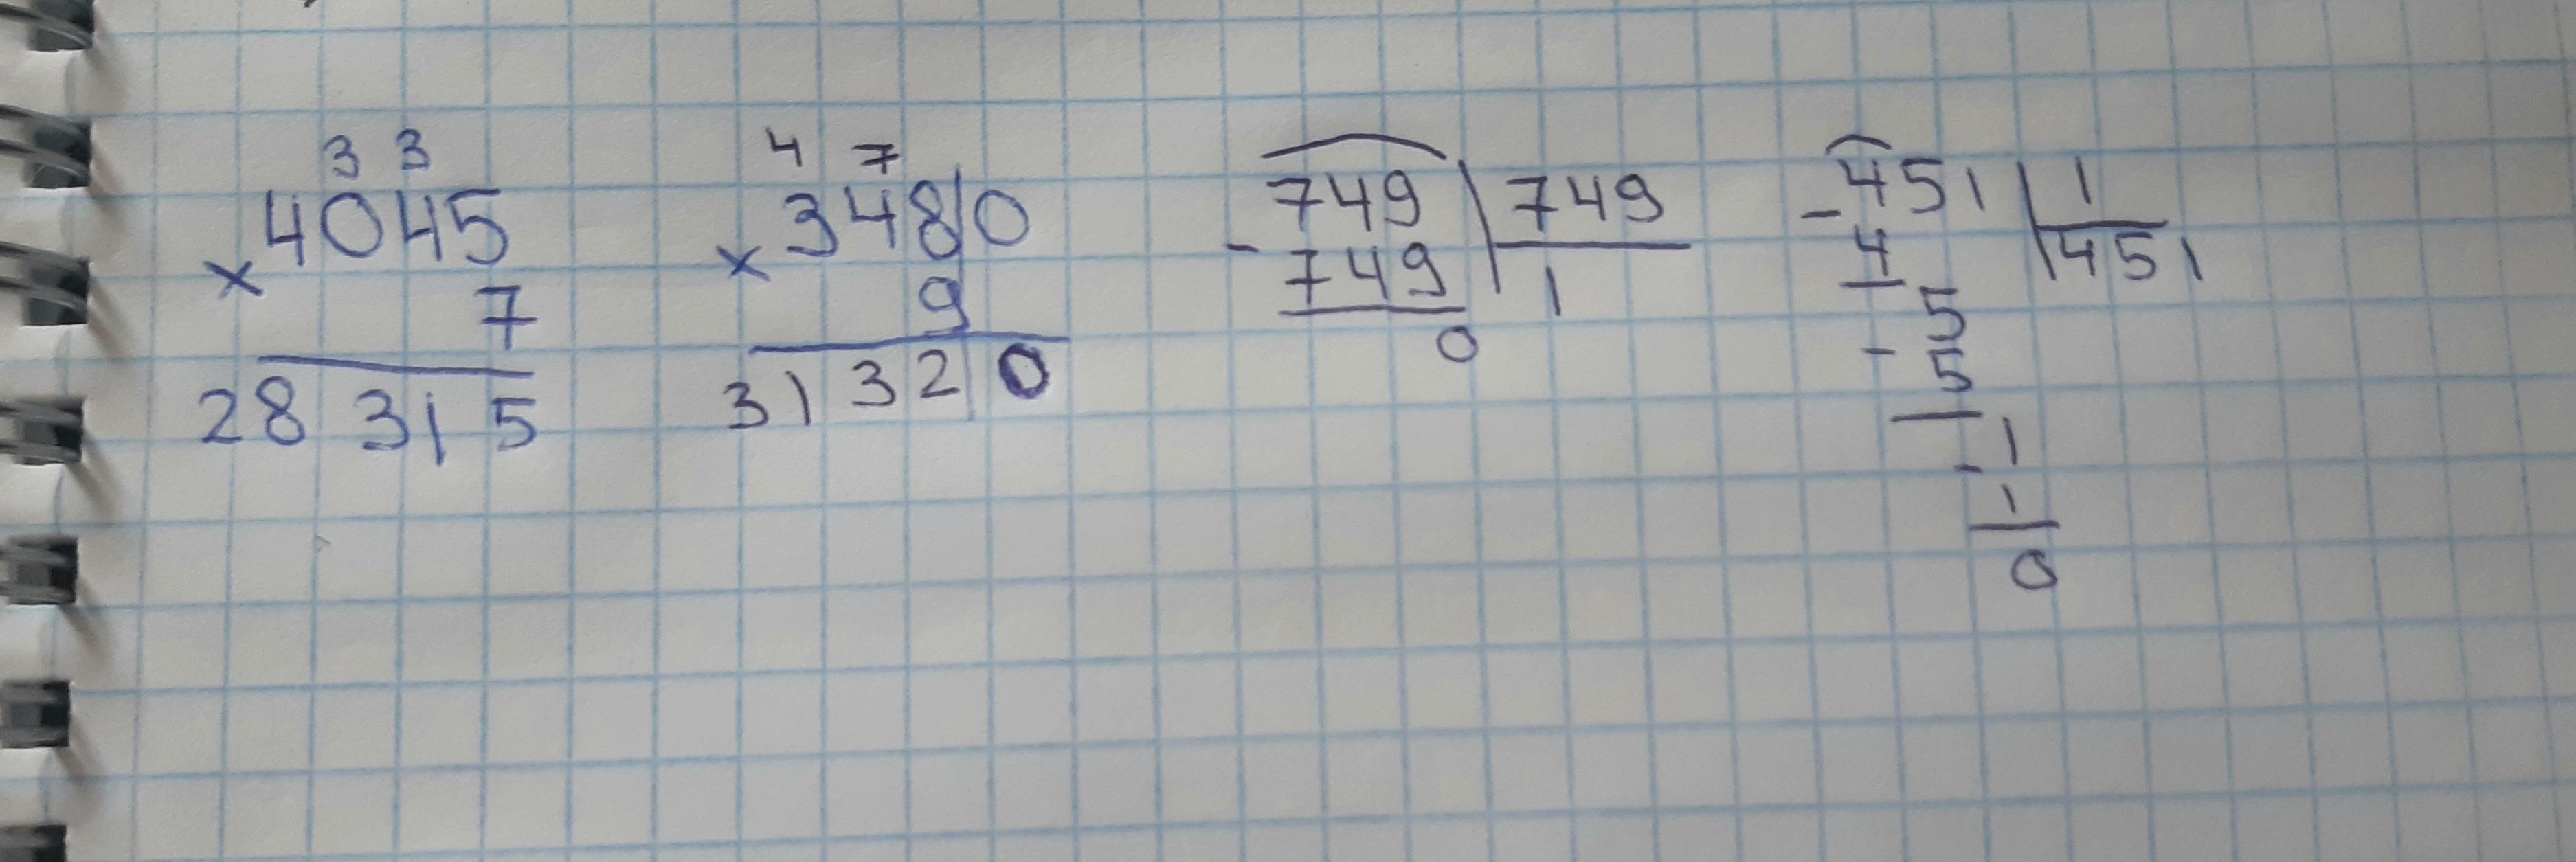 3 3
4045
× 7
28315
4 7
348|0
× 9
31320
749 | 749
- 749 | 1
0
- 451 | 1
4 | 451
5
- 5
1
- 1
0